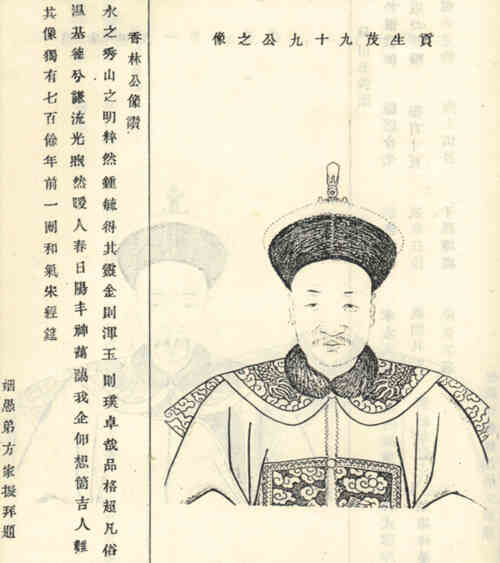 貢生茂九十九公之像
香林公像讚
水之秀山之明粹然鍾毓得其靈金則渾玉則璞卓哉品格超凡俗
溫基德兮謙流光煦然暖人春日陽丰神藹我企仰想箇吉人難
其像獨有七百餘年前一團和氣宋
姻愚弟方家振拜題